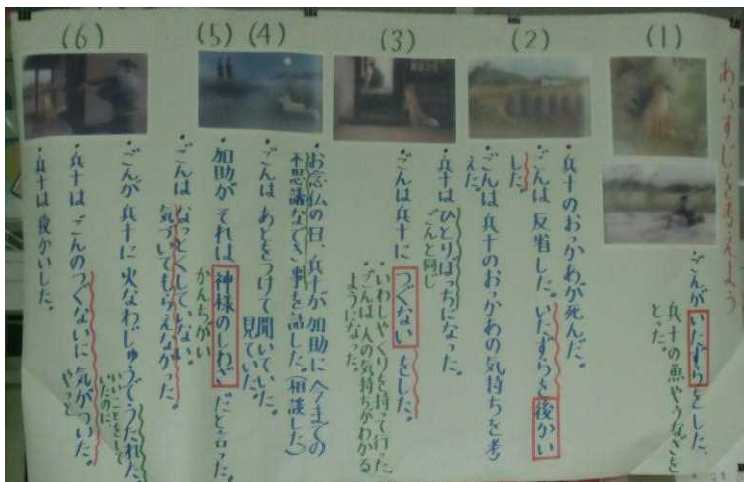 あらすじを考えよう
(1)
ごんがいたずらをした。
兵十の魚やうなぎを
とった。
(2)
・兵十のおっかあが死んだ。
・ごんは反省した。いたずらを後かい
した。
・ごんは兵十のおっかあの気持ちを考
えた。
(3)
・兵十はひとりぼっちになった。
ごんと同じ
・ごんは兵十につぐないをした。
・いわしやくりを持って行った。
・ごんは人の気持ちがわかる
ようになった。
(4)
・お念仏の日、兵十が加助に今までの
不思議なできごとを話した。(相談した)
・ごんはあとをつけて聞いていた。
見ていた。
(5)
・加助がそれは神様のしわざだと言った。
かんちがい
・ごんはなっとくしていない。
気づいてもらえなかった。
(6)
・ごんが兵十に火なわじゅうでうたれた。
いいことをして
いたのに、
・兵十はごんのつぐないに気がついた。
やっと
・兵十は後かいした。